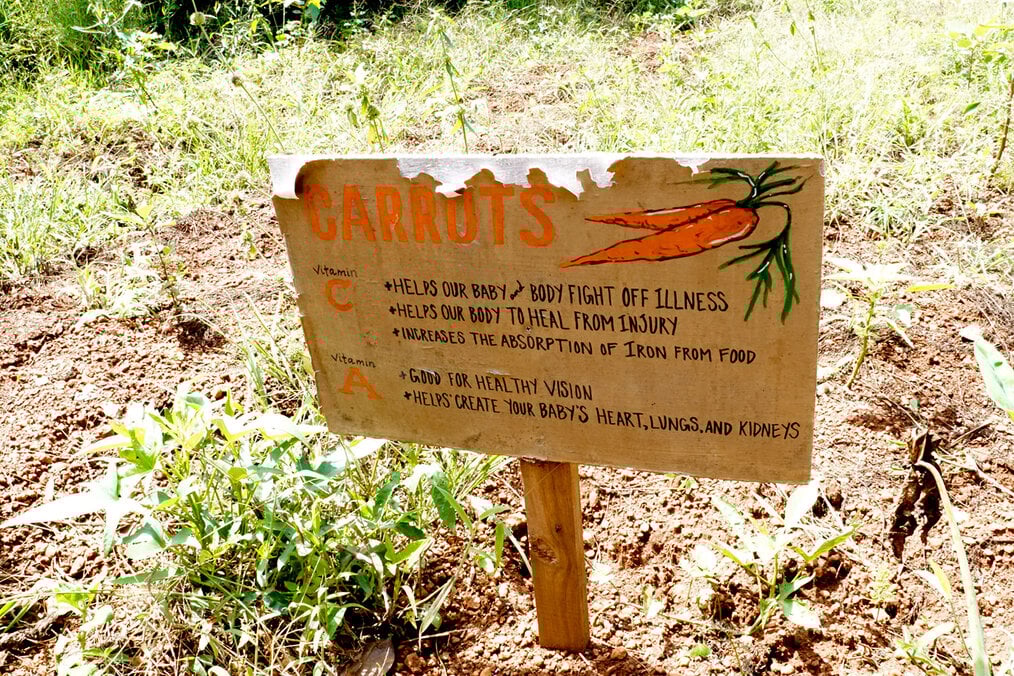 CARROTS
Vitamin
C
+HELPS OUR BABY and BODY FIGHT OFF ILLNESS
+HELPS OUR BODY TO HEAL FROM INJURY
+INCREASES THE ABSORPTION OF IRON FROM FOOD
Vitamin
A
+GOOD FOR HEALTHY VISION
+HELPS CREATE YOUR BABY'S HEART, LUNGS. AND KIDNEYS